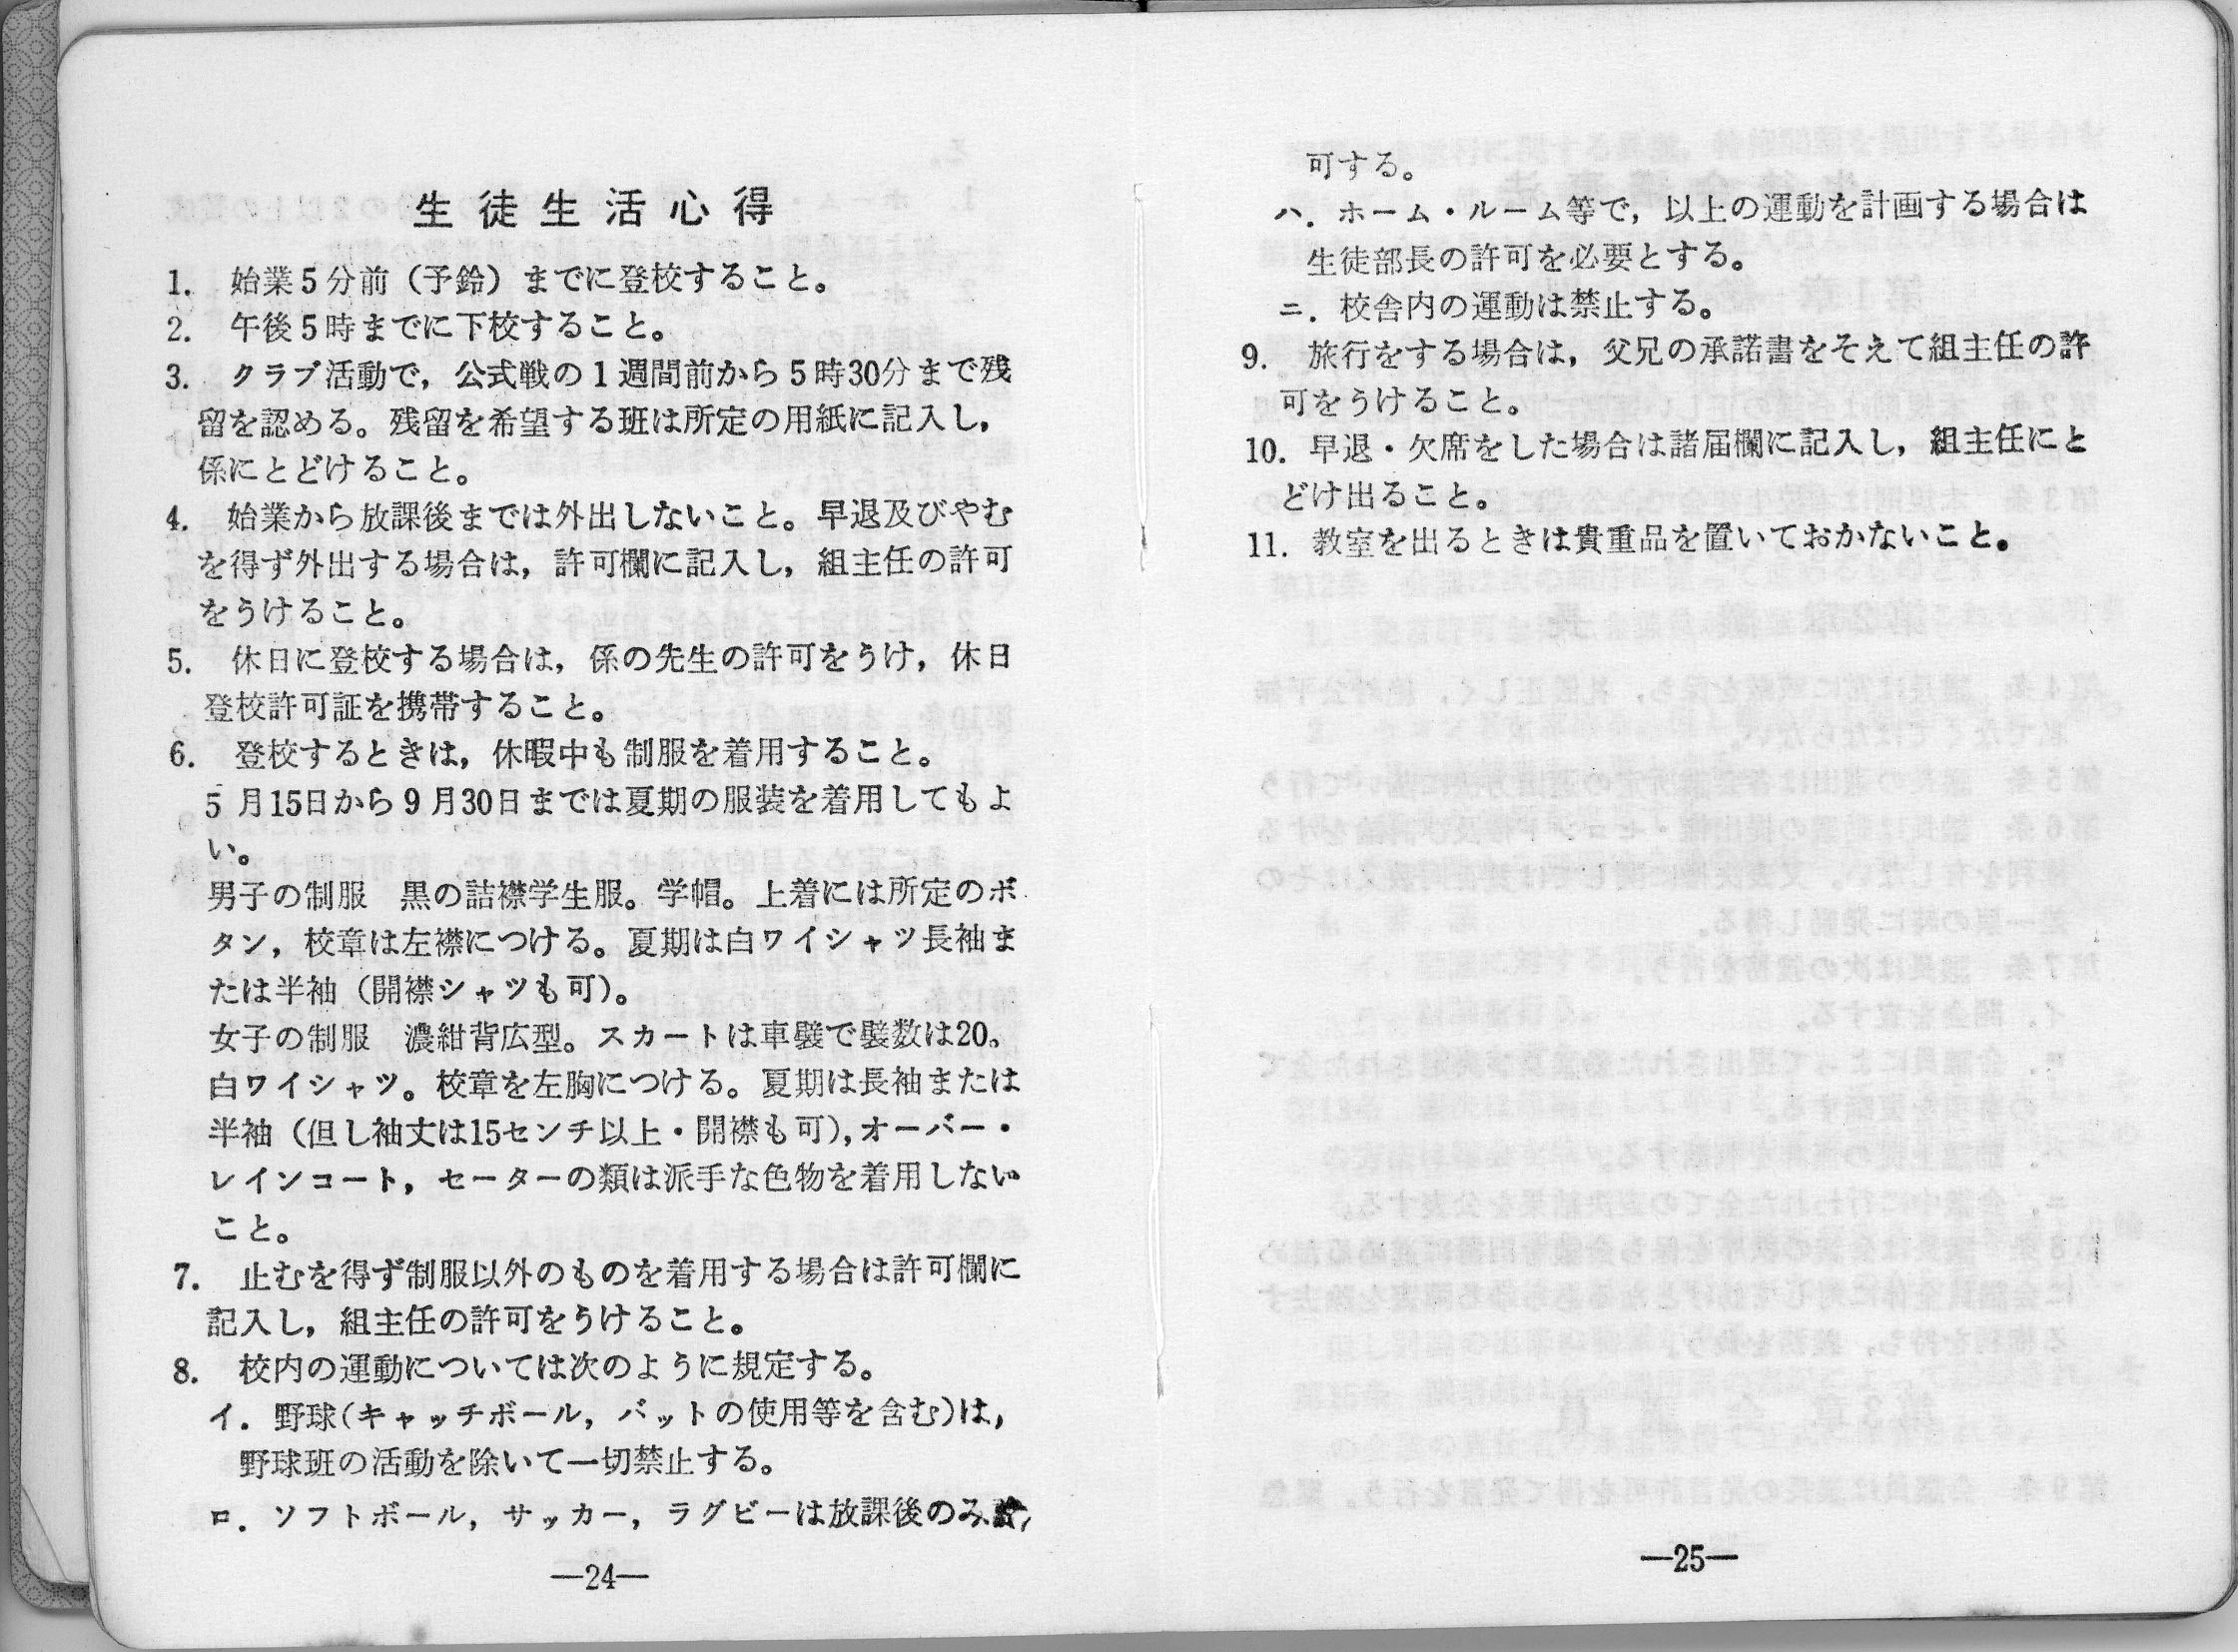 生徒生活心得
1. 始業5分前（予鈴）までに登校すること。
2. 午後5時までに下校すること。
3. クラブ活動で，公式戦の1週間前から5時30分まで残
留を認める。残留を希望する班は所定の用紙に記入し，
係にとどけること。
4. 始業から放課後までは外出しないこと。早退及びやむ
を得ず外出する場合は，許可欄に記入し，組主任の許可
をうけること。
5. 休日に登校する場合は，係の先生の許可をうけ，休日
登校許可証を携帯すること。
6. 登校するときは，休暇中も制服を着用すること。
5月15日から9月30日までは夏期の服装を着用してもよ
い。
男子の制服　黒の詰襟学生服。学帽。上着には所定のボ
タン，校章は左襟につける。夏期は白ワイシャツ長袖ま
たは半袖（開襟シャツも可）。
女子の制服　濃紺背広型。スカートは車襞で襞数は20。
白ワイシャツ。校章を左胸につける。夏期は長袖または
半袖（但し袖丈は15センチ以上・開襟も可），オーバー・
レインコート，セーターの類は派手な色物を着用しない
こと。
7. 止むを得ず制服以外のものを着用する場合は許可欄に
記入し，組主任の許可をうけること。
8. 校内の運動については次のように規定する。
イ．野球（キャッチボール，バットの使用等を含む）は，
野球班の活動を除いて一切禁止する。
ロ．ソフトボール，サッカー，ラグビーは放課後のみ
—24—
可する。
ハ．ホーム・ルーム等で，以上の運動を計画する場合は
生徒部長の許可を必要とする。
ニ．校舎内の運動は禁止する。
9. 旅行をする場合は，父兄の承諾書をそえて組主任の許
可をうけること。
10. 早退・欠席をした場合は諸届欄に記入し，組主任にと
どけ出ること。
11. 教室を出るときは貴重品を置いておかないこと。
—25—